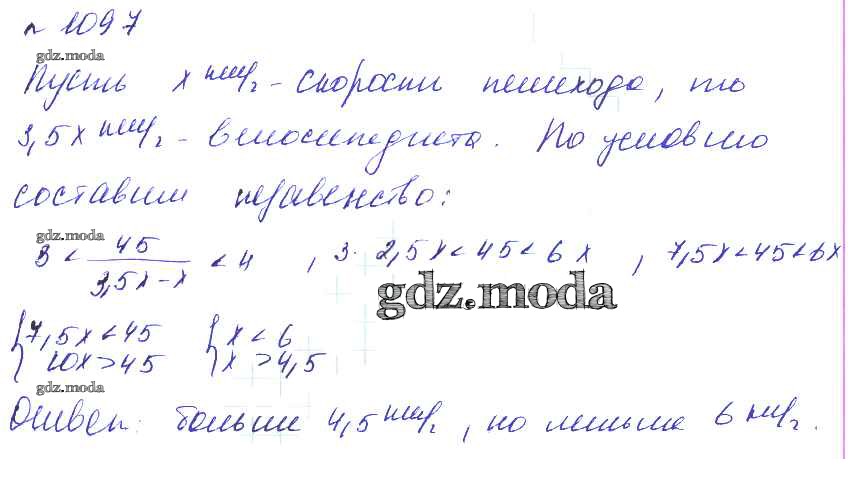 № 1097
gdz.moda
Пусть x км/ч - скорость пешехода, то
3,5x км/ч - велосипедиста. По условию
составим неравенство:
gdz.moda
3 < 45/(3,5x-x) < 4 , 3 · 2,5x < 45 < 6x , 7,5x < 45 < 6x
gdz.moda
{7,5x < 45 {x < 6
10x > 45 x > 4,5
gdz.moda
Ответ: больше 4,5 км/ч, но меньше 6 км/ч.